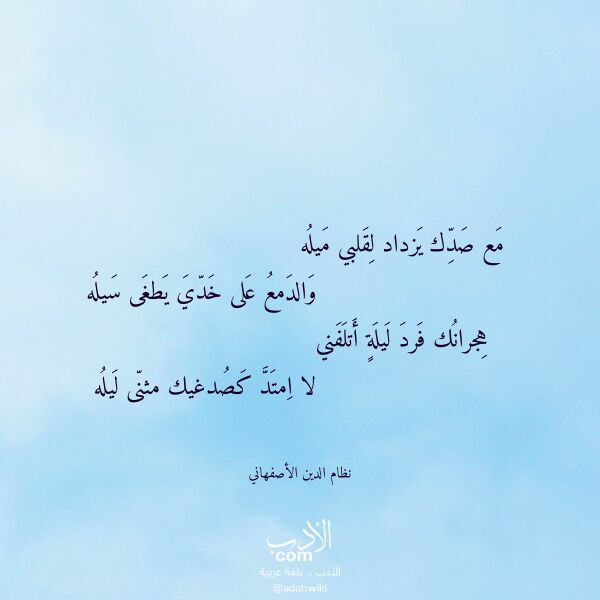 مَع صَدِّك يَزداد لِقَلبي مَيلُه
وَالدَمعُ عَلى خَدّيَ يَطغَى سَيلُه
هِجرانُك فَردَ لَيلَةٍ أَتلَفَني
لا اِمتَدَّ كَصُدغيك مثنّى لَيلُه
نظام الدين الأصفهاني
الأدب
.com
الأدب .. بلغة عربية
@adabwiki